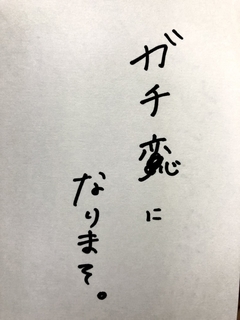 ガチ恋に
なりまそ。